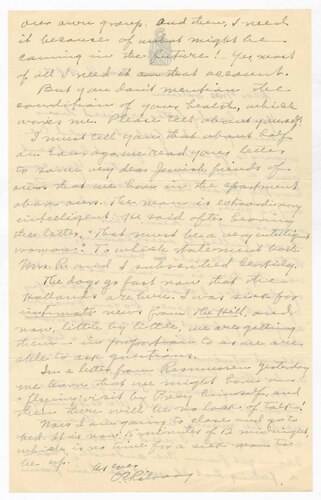 our own group. and then, I need
it because of what might be
coming in the future! Yes, most
of all I need it on that account.
But you don't mention the
condition of your health, which
Please tell about yourself.
I must tell you that about half
an hour ago, we read your letter
to some very dear Jewish friends of
ours that we have in the apartment
above ours. The man is extraordinary
intelligent. He said after hearing
the letter, "That must be a very intelligent
woman." To which statement both
Mrs. R. and I subscribed heartily.
The days go fast now that the
Hollands are here. I was sick for
intimate news from the Hill, and
now, little by little, we are getting
them - in proportion to as we are
able to ask questions.
In a letter from Rasmussen yesterday
we learn that we might have a
"flying" visit by Pacy himself, and
then there will be no lack of talk.
Now I am going to close and go to
bed. It is now 5 minutes of 12 midnight
which is no time for a sick man to
be up.
As ever